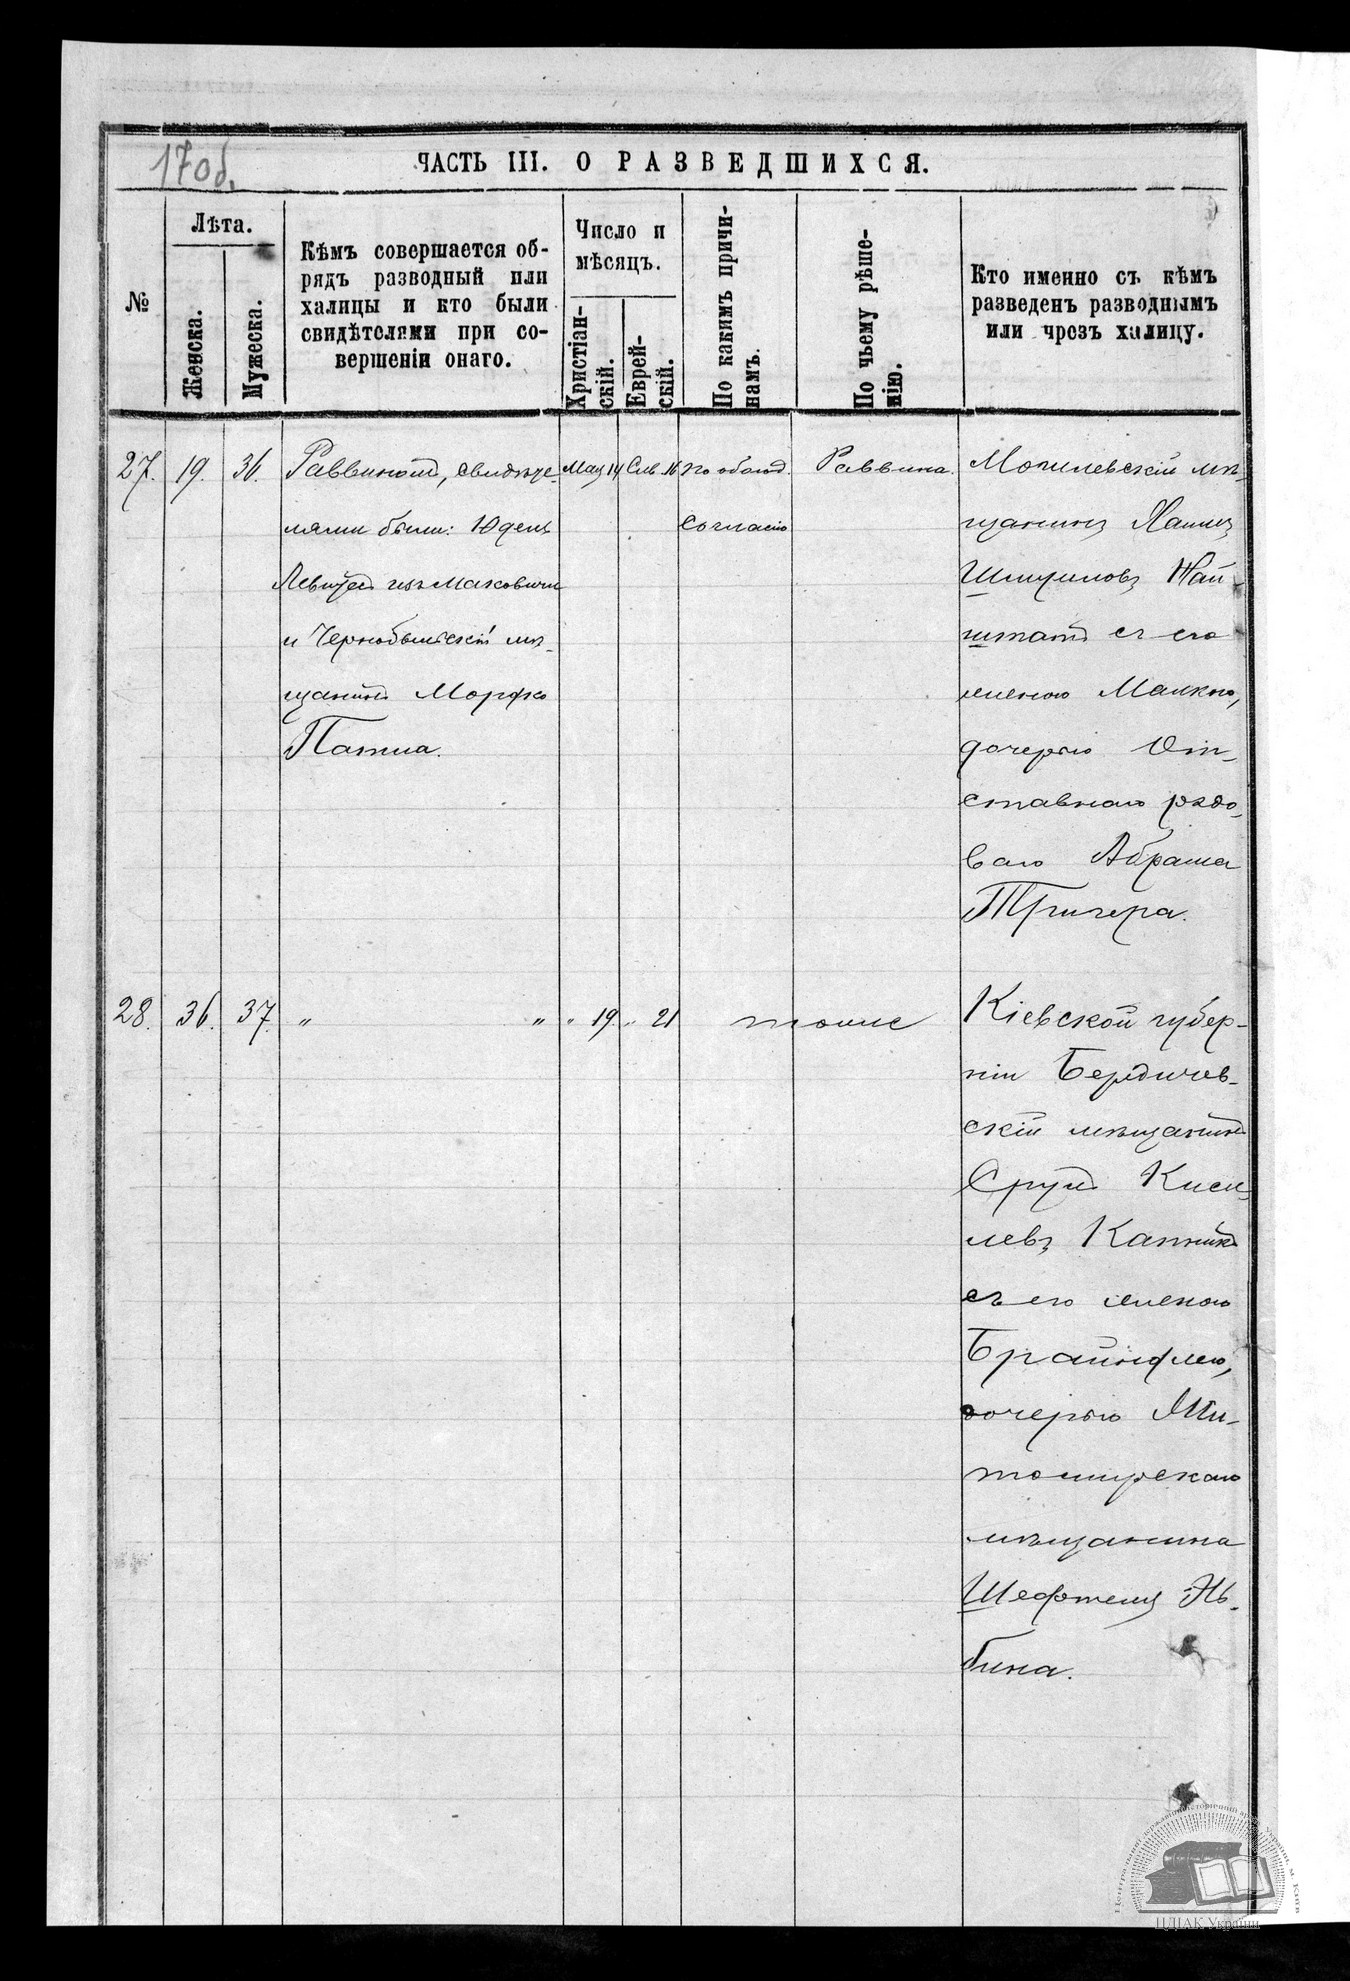 17об.
ЧАСТЬ III. О РАЗВЕДШИХСЯ.
№
Лѣта.
Женска.
Мужеска.
Кѣмъ совершается об-
рядъ разводный или
халицы и кто были
свидѣтелями при со-
вершеніи онаго.
Число и
мѣсяцъ.
Христіан-
скій.
Еврей-
скій.
По какимъ причи-
намъ.
По чьему рѣше-
нію.
Кто именно съ кѣмъ
разведенъ разводнымъ
или чрезъ халицу.
27. 19. 36. Раввиномъ, свидѣте-
лями были: Юдель
и Чернобыльскій мѣ-
щанинъ Мордко
Май 14 Сив. 16 по обоюд.
согласію
Раввина.
Могилевскій мѣ-
щанинъ Хаимъ
Шмуиловъ Най-
штатъ съ его
женою Малкою,
дочерью От-
ставного рядо-
ваго Абрама
Тригера.
28. 36. 37. „ „ „ 19. „ 21 тоже
Кіевской губер-
ніи Бердичев-
скій мѣщанинъ
Сруль Киси-
левъ Катникъ
съ его женою
Брайндлею,
дочерью Жи-
томирскаго
мѣщанина
Шефтеля
бина.
Центральний державний історичний архів України, м. Київ
ЦДІАК України